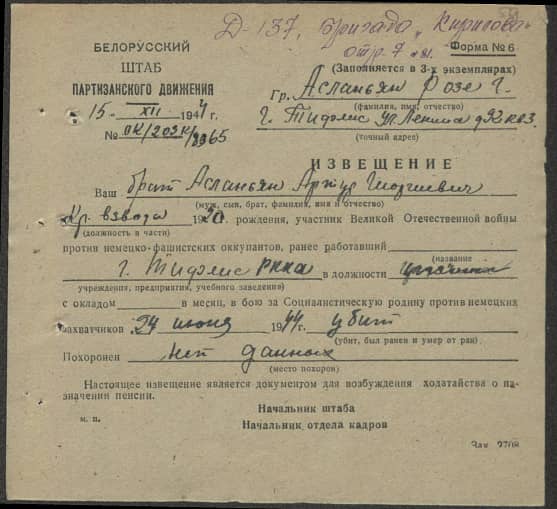 Д-137, Бригада „Кирилова"
отр. 7
БЕЛОРУССКИЙ
ШТАБ
ПАРТИЗАНСКОГО ДВИЖЕНИЯ
15 XII 1944 г.
№
Форма № 6
(Заполняется в 3-х экземплярах)
Гр. Асланьян Розе Г.
(фамилия, имя, отчество)
г. Тифлис ул. Ленина
(точный адрес)
ИЗВЕЩЕНИЕ
Ваш брат Асланьян Артур Георгиевич
(муж, сын, брат, фамилия, имя и отчество)
взвода 1920 г. рождения, участник Великой Отечественной войны
(должность в части)
против немецко-фашистских оккупантов, ранее работавший
(название
г. Тифлис РККА в должности
учреждения, предприятия, учебного заведения)
с окладом в месяц, в бою за Социалистическую родину против немецких
захватчиков 24 июня 1944 г. убит
(убит, был ранен и умер от ран)
Похоронен нет данных
(место похорон)
Настоящее извещение является документом для возбуждения ходатайства о на-
значении пенсии.
Начальник штаба
м. п.
Начальник отдела кадров